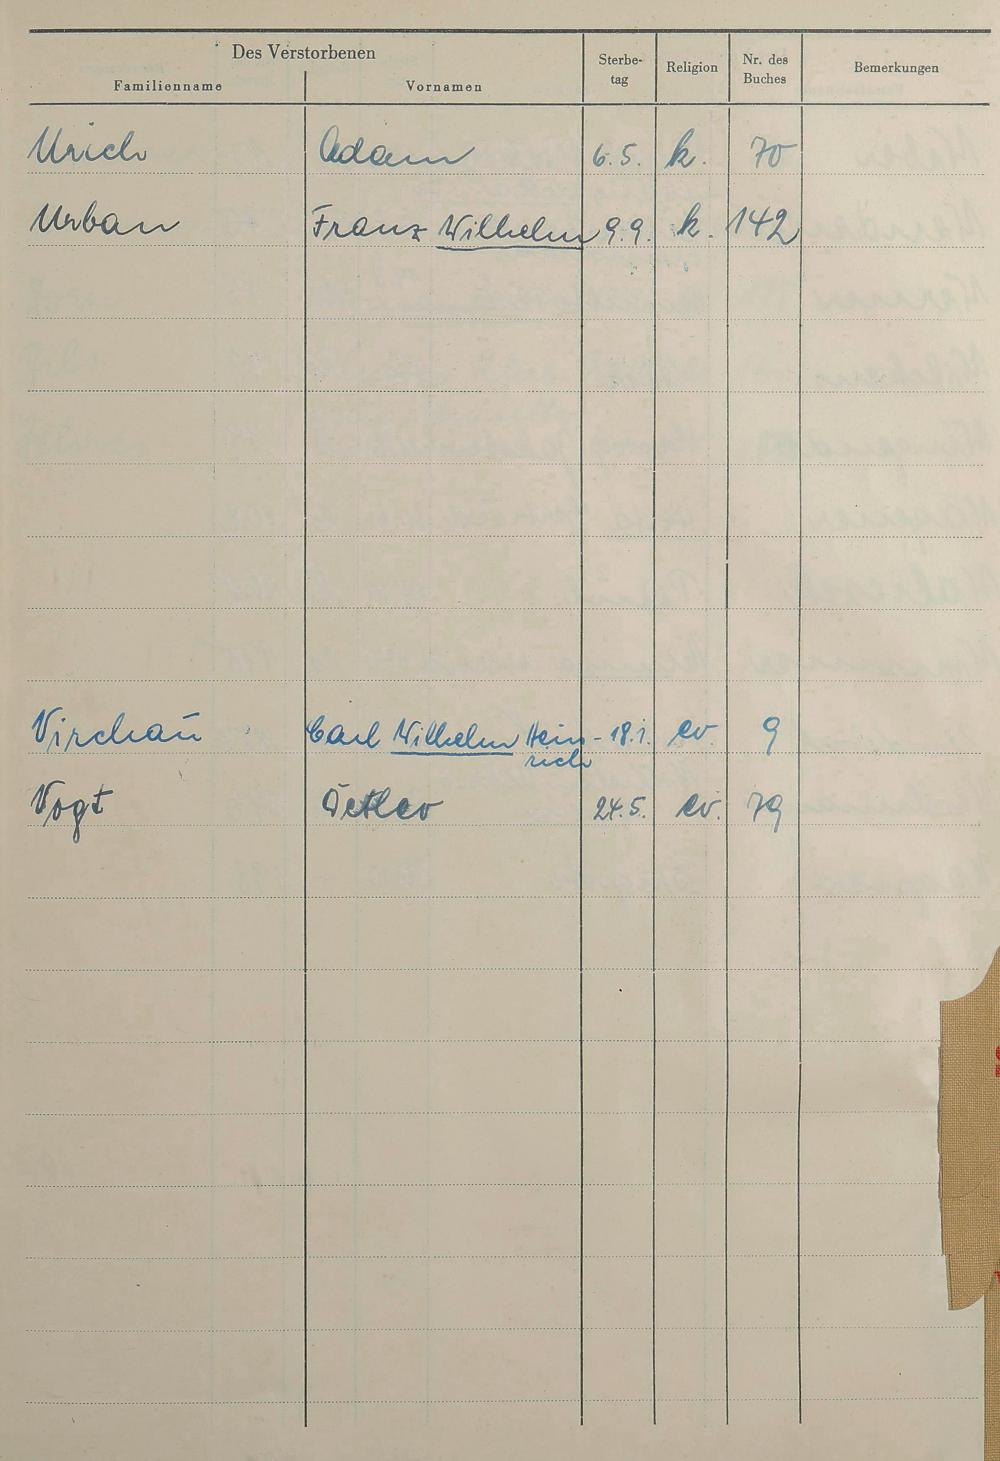 Des Verstorbenen
Familienname Vornamen Sterbe-tag Religion Nr. des Buches Bemerkungen
Urich Adam 6.5. k. 70
Urban Franz Wilhelm 9.9. k. 142
Virchau Carl Wilhelm Hein- 18.1. ev 9
rich
Vogt Detlev 24.5. ev. 79